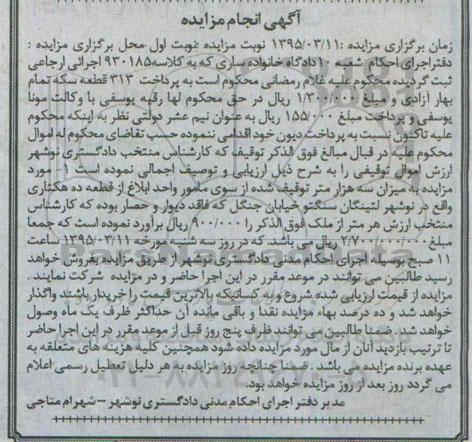 آگهی انجام مزایده
زمان برگزاری مزایده :۱۳۹۵/۰۳/۱۱ نوبت مزایده :نوبت اول محل برگزاری مزایده :
دفتراجرای احکام شعبه ۱۰دادگاه خانواده ساری که به کلاسه۹۳۰۱۸۵ اجرائی ارجاعی
ثبت گردیده محکوم علیه غلام رمضانی محکوم است به پرداخت ۳۱۳ قطعه سکه تمام
بهار آزادی و مبلغ ریال در حق محکوم لها رقیه یوسفی با وکالت مونا
یوسفی و پرداخت مبلغ ۱۵۵/۰۰۰ ریال به عنوان نیم عشر دولتی نظر به اینکه محکوم
علیه تاکنون نسبت به پرداخت دیون خود اقدامی ننموده حسب تقاضای محکوم له اموال
محکوم علیه در قبال مبالغ فوق الذکر توقیف که کارشناس منتخب دادگستری نوشهر
ارزش اموال توقیفی را به شرح ذیل ارزیابی و توصیف اجمالی نموده است ۱- مورد
مزایده به میزان سه هزار متر توقیف شده از سوی مامور واحد ابلاغ از قطعه ده هکتاری
واقع در نوشهر لتینگان سنگتو خیابان جنگل که فاقد دیوار و حصار بوده که کارشناس
منتخب ارزش هر متر از ملک فوق الذکر را ۹۰۰/۰۰۰ ریال برآورد نموده است که جمعا
مبلغ ۲/۷۰۰/۰۰۰/۰۰۰ ریال می باشد. که در روز سه شنبه مورخه ۱۳۹۵/۰۳/۱۱ ساعت
۱۱ صبح بوسیله اجرای احکام مدنی دادگستری نوشهر از طریق مزایده بفروش خواهد
رسید طالبین می توانند در موعد مقرر در این اجرا حاضر و در مزایده شرکت نمایند .
مزایده از قیمت ارزیابی شده شروع و به کسانیکه بالاترین قیمت را خریدار باشند واگذار
خواهد شد و ده درصد بهاء مزایده نقدا و باقی مانده آن حداکثر ظرف یک ماه وصول
خواهد شد. ضمنا طالبین می توانند ظرف پنج روز قبل از موعد مقرر در این اجرا حاضر
تا ترتیب بازدید آنان از مال مورد مزایده داده شود همچنین کلیه هزینه های متعلقه به
عهده برنده مزایده می باشد . ضمنا چنانچه روز مزایده به هر دلیل تعطیل رسمی اعلام
می گردد روز بعد از روز مزایده خواهد بود.
مدیر دفتر اجرای احکام مدنی دادگستری نوشهر – شهرام متاجی